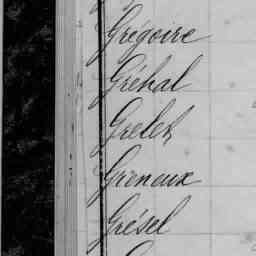 Grégoire
Gréhal
Grelet
Greneux
Grésel